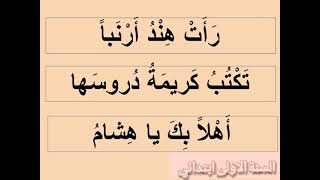 رَأَتْ هِنْدُ أَرْنَباً
تَكْتُبُ كَريمَةُ دُروسَها
أَهْلاً بِكَ يا هِشامُ
السنة الاولى ابتدائي